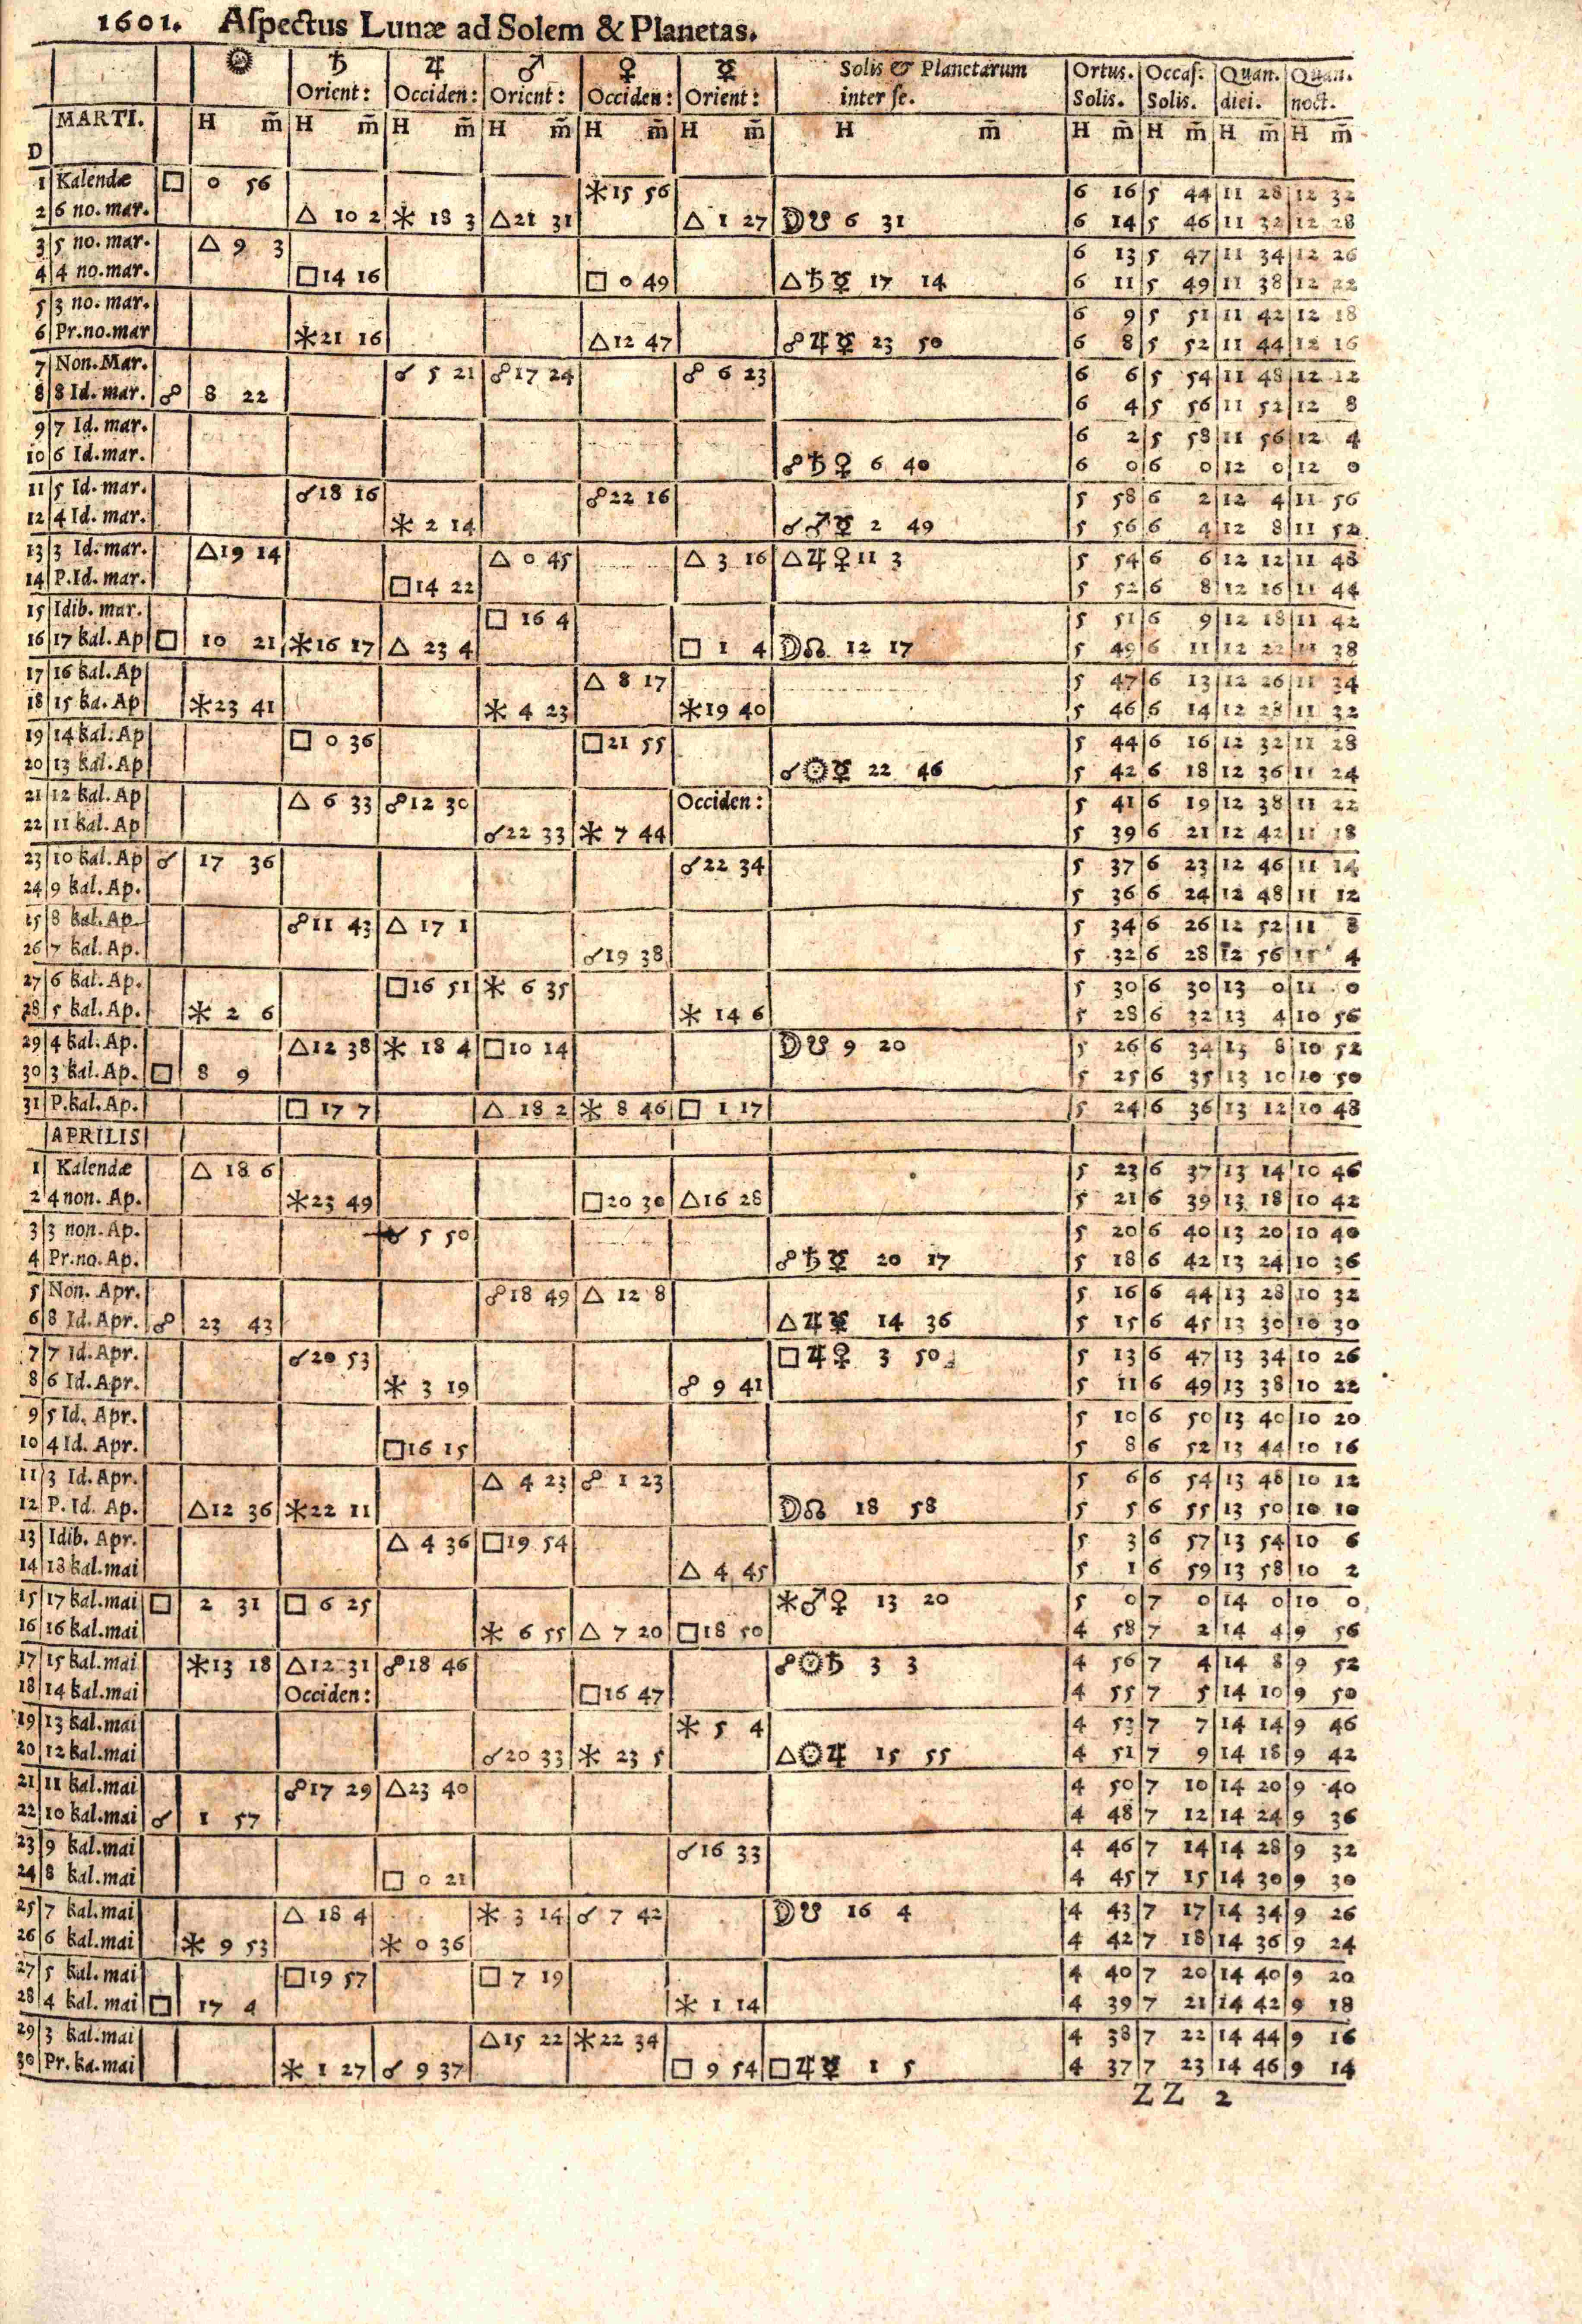 1601. Aſpectus Lunæ ad Solem & Planetas.
☉ ♄ ♃ ♂ ♀ ☿ Solis & Planetarum Ortus. Occaſ: Quan. Quan.
Orient: Occiden: Orient: Occiden: Orient: inter ſe. Solis. Solis. diei. noct.
D MARTI. H m̄ H m̄ H m̄ H m̄ H m̄ H m̄ H m̄ H m̄ H m̄ H m̄ H m̄
1 Kalendæ □ 0 56 ⚹ 15 56 6 16 5 44 11 28 12 32
2 6 no. mar. △ 10 2 ⚹ 18 3 △ 21 31 △ 1 27 ☽☋ 6 31 6 14 5 46 11 32 12 28
3 5 no. mar. △ 9 3 6 13 5 47 11 34 12 26
4 4 no. mar. □ 14 16 □ 0 49 △♄☿ 17 14 6 11 5 49 11 38 12 22
5 3 no. mar. 6 9 5 51 11 42 12 18
6 Pr.no.mar ⚹ 21 16 △ 12 47 ☍♃☿ 23 50 6 8 5 52 11 44 12 16
7 Non. Mar. ☌ 5 21 ☍ 17 24 ☍ 6 23 6 6 5 54 11 48 12 12
8 8 Id. mar. ☍ 8 22 6 4 5 56 11 52 12 8
9 7 Id. mar. 6 2 5 58 11 56 12 4
10 6 Id. mar. ☍♄♀ 6 40 6 0 6 0 12 0 12 0
11 5 Id. mar. ☌ 18 16 ☍ 22 16 5 58 6 2 12 4 11 56
12 4 Id. mar. ⚹ 2 14 ☌♂☿ 2 49 5 56 6 4 12 8 11 52
13 3 Id. mar. △ 19 14 △ 0 45 △ 3 16 △♃♀ 11 3 5 54 6 6 12 12 11 48
14 P.Id. mar. □ 14 22 5 52 6 8 12 16 11 44
15 Idib. mar. □ 16 4 5 51 6 9 12 18 11 42
16 17 kal. Ap □ 10 21 ⚹ 16 17 △ 23 4 □ 1 4 ☽☊ 12 17 5 49 6 11 12 22 11 38
17 16 kal. Ap △ 8 17 5 47 6 13 12 26 11 34
18 15 ka. Ap ⚹ 23 41 ⚹ 4 23 ⚹ 19 40 5 46 6 14 12 28 11 32
19 14 kal. Ap □ 0 36 □ 21 55 5 44 6 16 12 32 11 28
20 13 kal. Ap ☌☉☿ 22 46 5 42 6 18 12 36 11 24
21 12 kal. Ap △ 6 33 ☍ 12 30 Occiden: 5 41 6 19 12 38 11 22
22 11 kal. Ap ☌ 22 33 ⚹ 7 44 5 39 6 21 12 42 11 18
23 10 kal. Ap ☌ 17 36 ☌ 22 34 5 37 6 23 12 46 11 14
24 9 kal. Ap. 5 36 6 24 12 48 11 12
25 8 kal. Ap. ☍ 11 43 △ 17 1 5 34 6 26 12 52 11 8
26 7 kal. Ap. ☌ 19 38 5 32 6 28 12 56 11 4
27 6 kal. Ap. □ 16 51 ⚹ 6 35 5 30 6 30 13 0 11 0
28 5 kal. Ap. ⚹ 2 6 ⚹ 14 6 5 28 6 32 13 4 10 56
29 4 kal. Ap. △ 12 38 ⚹ 18 4 □ 10 14 ☽☋ 9 20 5 26 6 34 13 8 10 52
30 3 kal. Ap. □ 8 9 5 25 6 35 13 10 10 50
31 P.kal. Ap. □ 17 7 △ 18 2 ⚹ 8 46 □ 1 17 5 24 6 36 13 12 10 48
APRILIS
1 Kalendæ △ 18 6 5 23 6 37 13 14 10 46
2 4 non. Ap. ⚹ 23 49 □ 20 30 △ 16 28 5 21 6 39 13 18 10 42
3 3 non. Ap. ☌ 5 50 5 20 6 40 13 20 10 40
4 Pr.no. Ap. ☍♄☿ 20 17 5 18 6 42 13 24 10 36
5 Non. Apr. ☍ 18 49 △ 12 8 5 16 6 44 13 28 10 32
6 8 Id. Apr. ☍ 23 43 △♃☿ 14 36 5 15 6 45 13 30 10 30
7 7 Id. Apr. ☌ 20 53 □♃♀ 3 50 5 13 6 47 13 34 10 26
8 6 Id. Apr. ⚹ 3 19 ☍ 9 41 5 11 6 49 13 38 10 22
9 5 Id. Apr. 5 10 6 50 13 40 10 20
10 4 Id. Apr. □ 16 15 5 8 6 52 13 44 10 16
11 3 Id. Apr. △ 4 23 ☍ 1 23 5 6 6 54 13 48 10 12
12 P. Id. Ap. △ 12 36 ⚹ 22 11 ☽☊ 18 58 5 5 6 55 13 50 10 10
13 Idib. Apr. △ 4 36 □ 19 54 5 3 6 57 13 54 10 6
14 18 kal.mai △ 4 45 5 1 6 59 13 58 10 2
15 17 kal.mai □ 2 31 □ 6 25 ⚹♂♀ 13 20 5 0 7 0 14 0 10 0
16 16 kal.mai ⚹ 6 55 △ 7 20 □ 18 50 4 58 7 2 14 4 9 56
17 15 kal.mai ⚹ 13 18 △ 12 31 ☍ 18 46 ☍☉♄ 3 3 4 56 7 4 14 8 9 52
18 14 kal.mai Occiden: □ 16 47 4 55 7 5 14 10 9 50
19 13 kal.mai ⚹ 5 4 4 53 7 7 14 14 9 46
20 12 kal.mai ☌ 20 33 ⚹ 23 5 △☉♃ 15 55 4 51 7 9 14 18 9 42
21 11 kal.mai ☍ 17 29 △ 23 40 4 50 7 10 14 20 9 40
22 10 kal.mai ☌ 1 57 4 48 7 12 14 24 9 36
23 9 kal.mai ☌ 16 33 4 46 7 14 14 28 9 32
24 8 kal.mai □ 0 21 4 45 7 15 14 30 9 30
25 7 kal.mai △ 18 4 ⚹ 3 14 ☌ 7 42 ☽☋ 16 4 4 43 7 17 14 34 9 26
26 6 kal.mai ⚹ 9 53 ⚹ 0 36 4 42 7 18 14 36 9 24
27 5 kal.mai □ 19 57 □ 7 19 4 40 7 20 14 40 9 20
28 4 kal. mai □ 17 4 ⚹ 1 14 4 39 7 21 14 42 9 18
29 3 kal.mai △ 15 22 ⚹ 22 34 4 38 7 22 14 44 9 16
30 Pr.ka.mai ⚹ 1 27 ☌ 9 37 □ 9 54 □♃☿ 1 5 4 37 7 23 14 46 9 14
ZZ 2